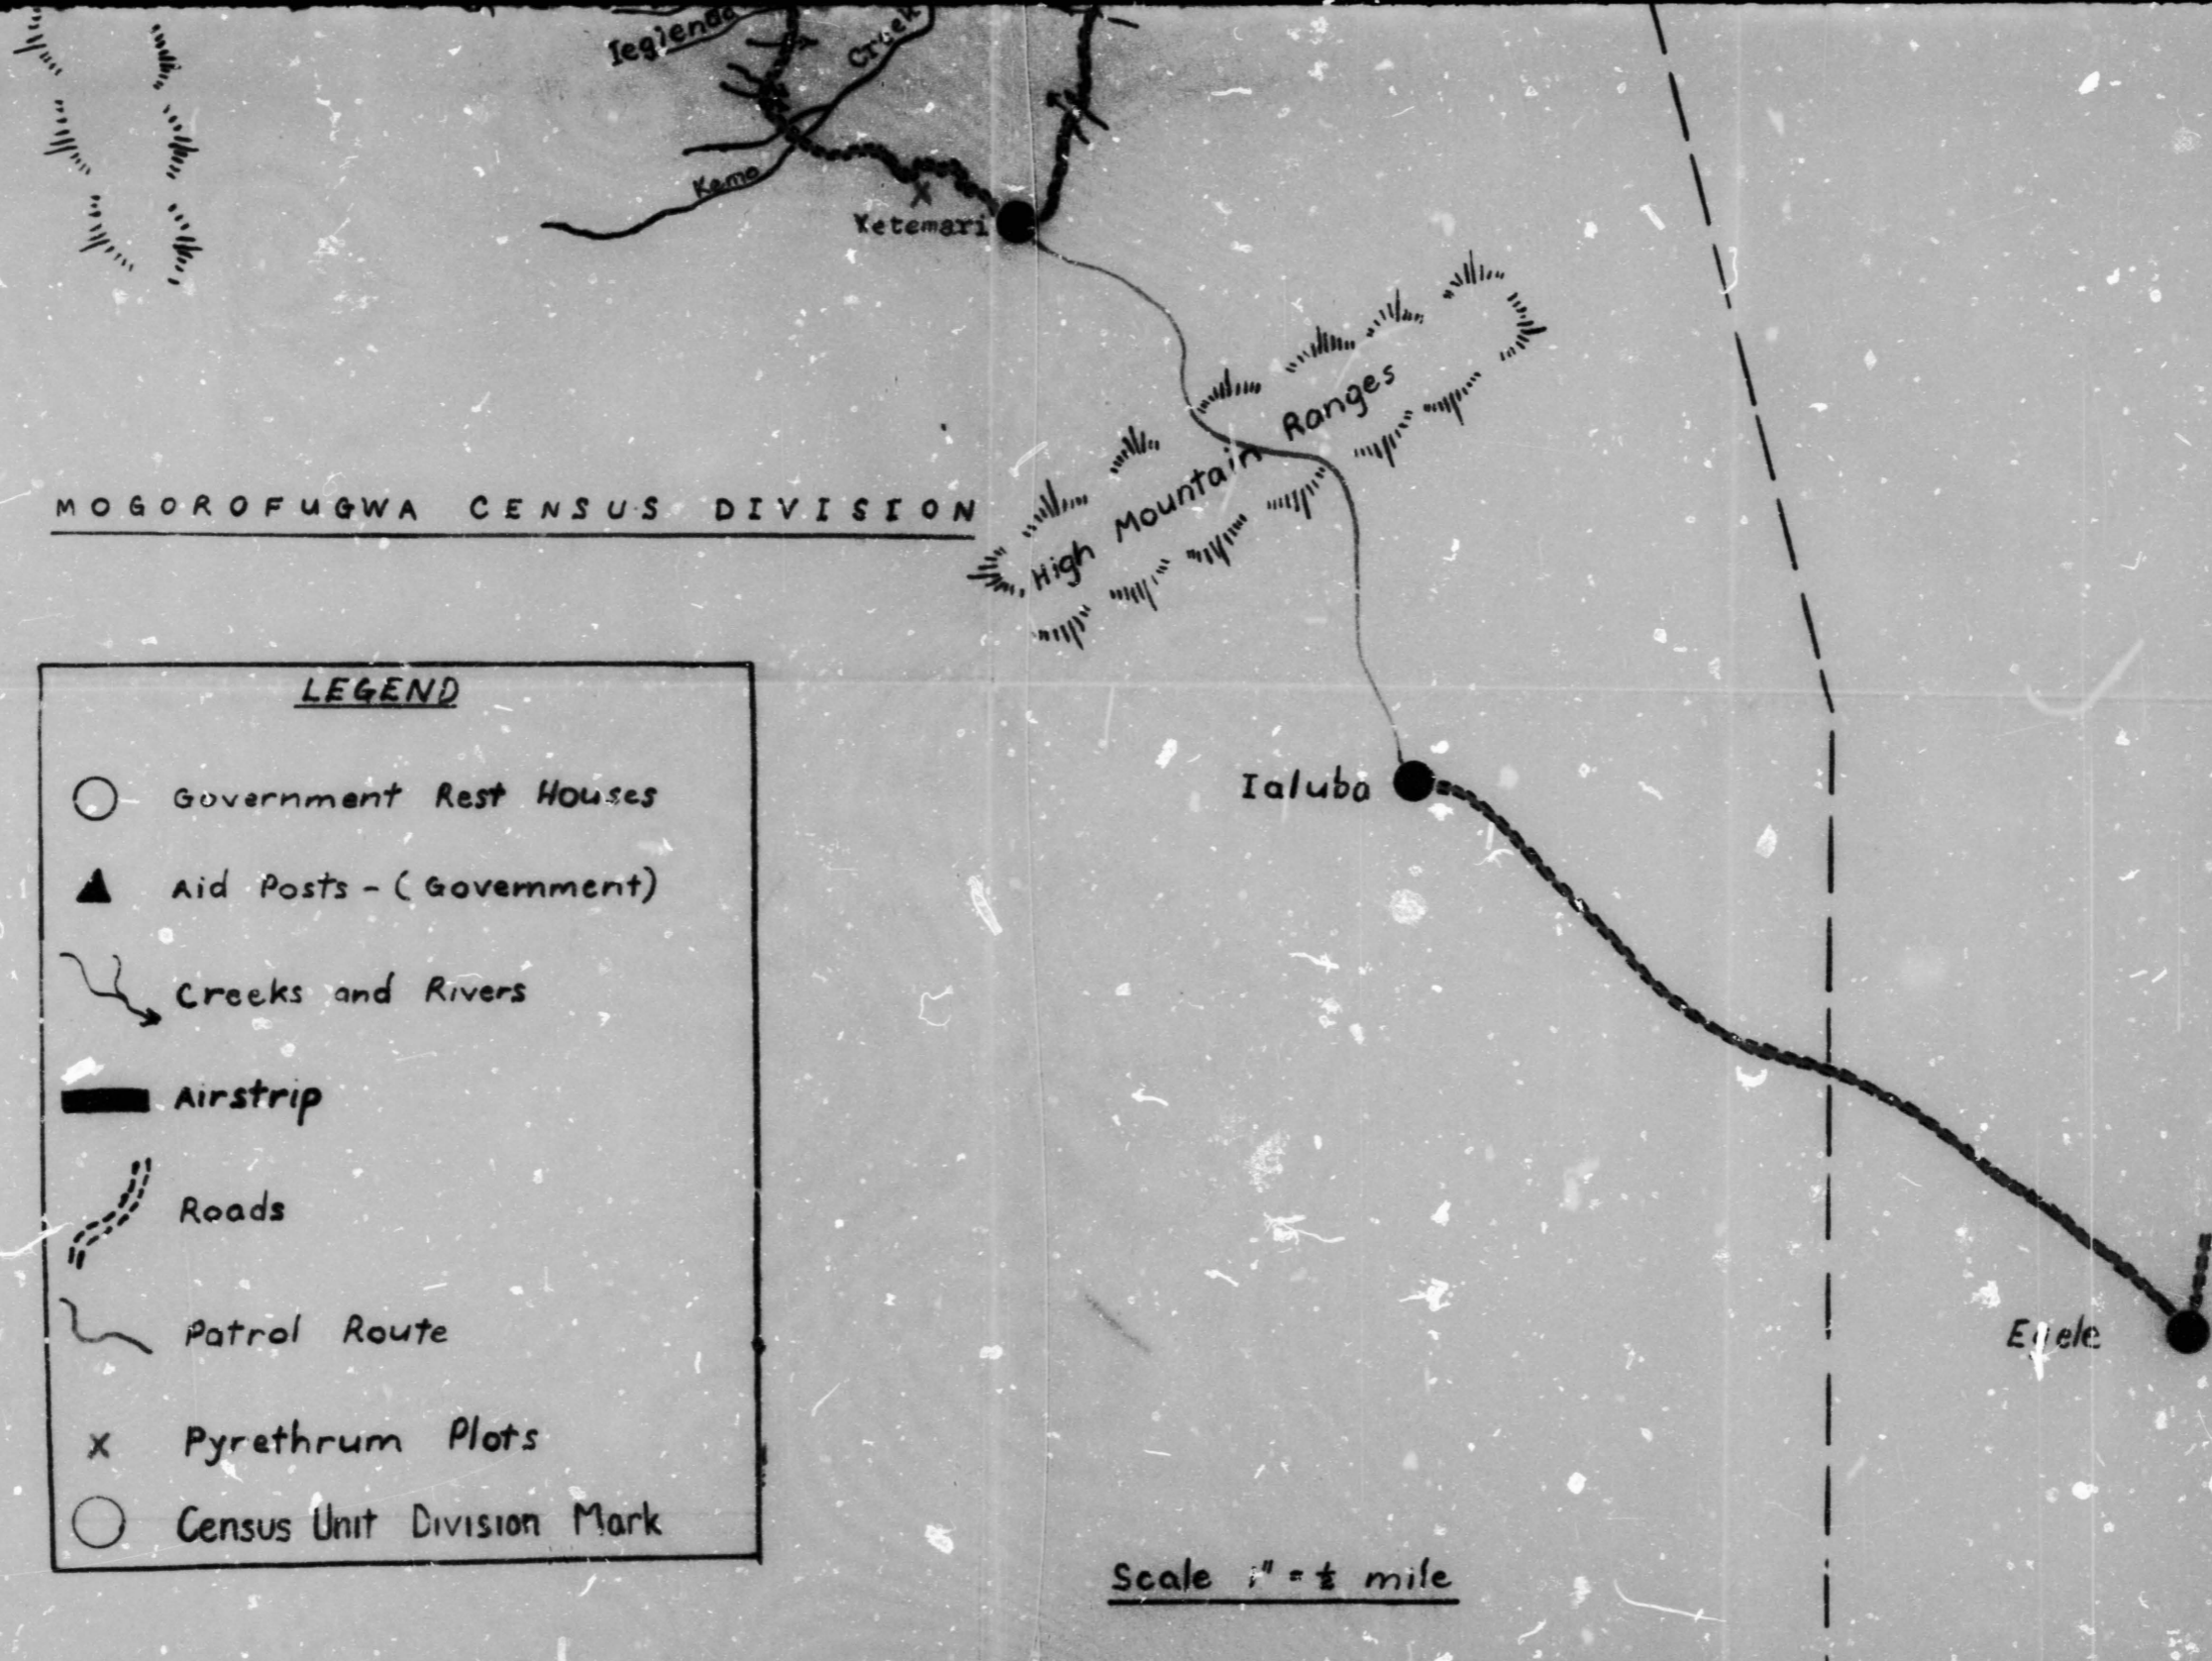 Creek
Kemo
Yetemari
High Mountain Ranges
MOGOROFUGWA CENSUS DIVISION
LEGEND
Government Rest Houses
Aid Posts - (Government)
Creeks and Rivers
Airstrip
Roads
Patrol Route
x Pyrethrum Plots
Census Unit Division Mark
Ialuba
Scale 1" = ½ mile